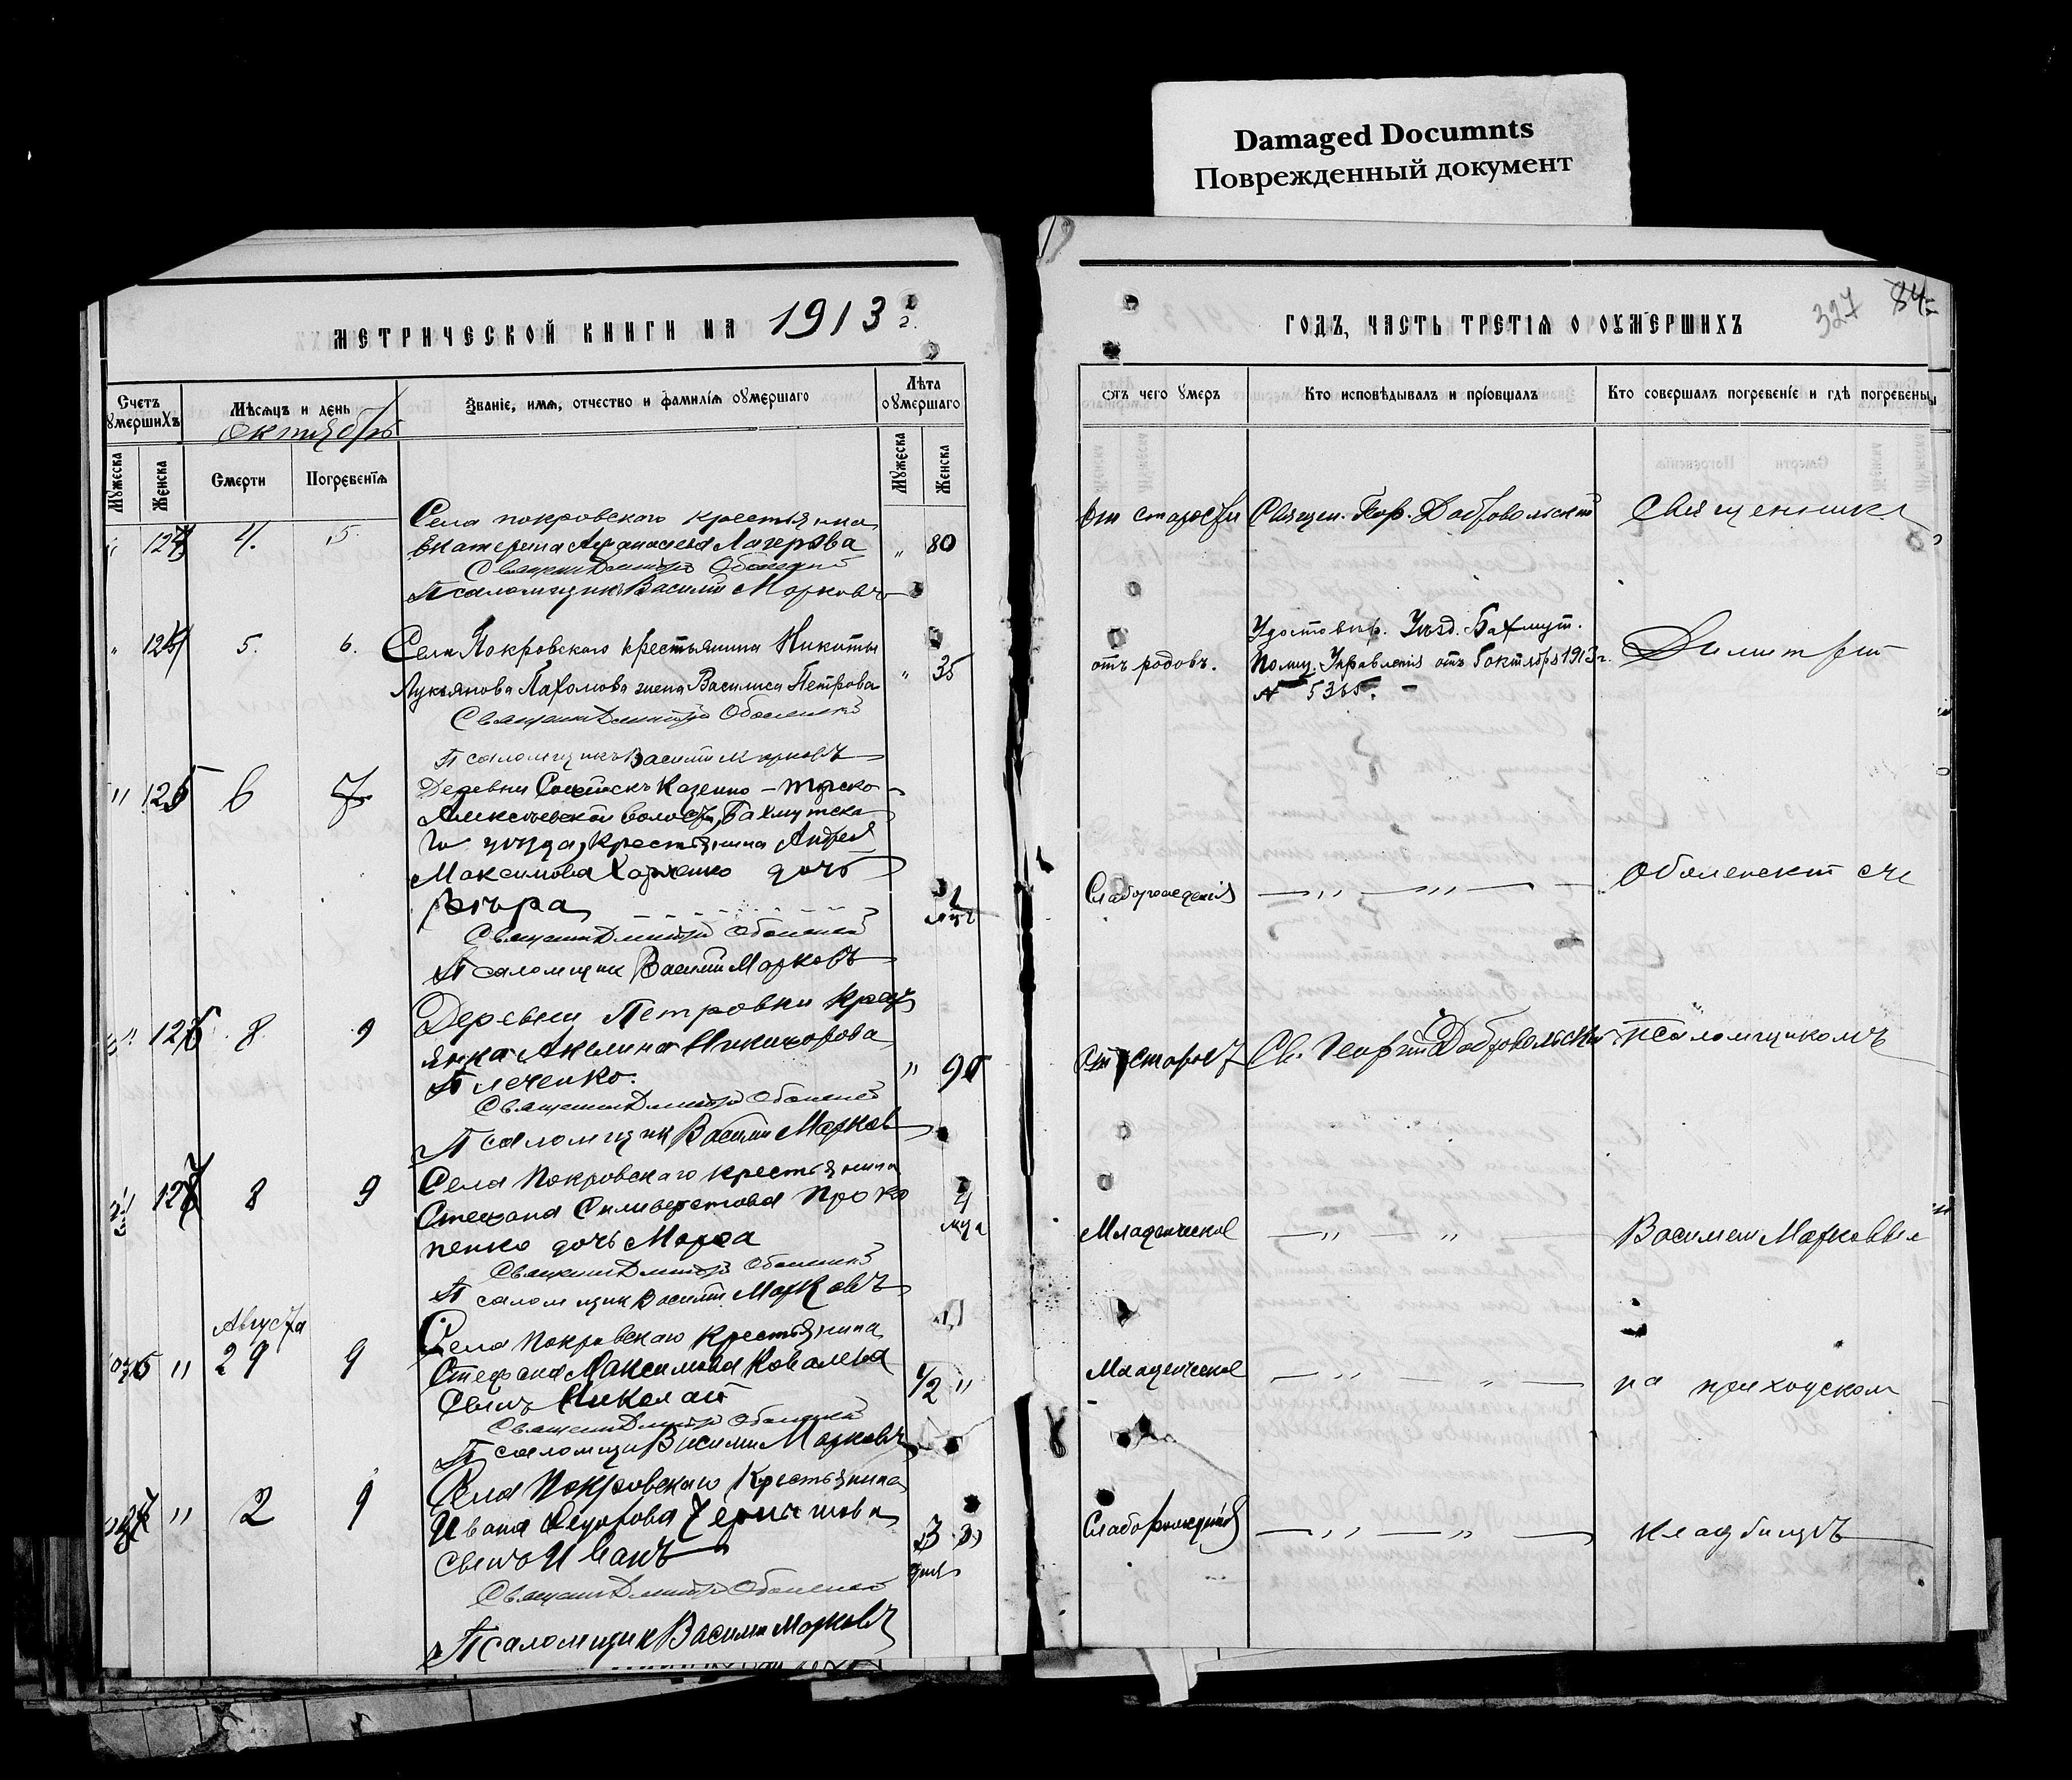 Damaged Documnts
Поврежденный документ
МЕТРИЧЕСКОЙ КНИГИ НА 1913
ГОДЪ, ЧАСТЬ ТРЕТІЯ О ОУМЕРШИХЪ
327 84
Счетъ оумершихЪ
Мѣсяцъ и день
Октябрь
Званіе, имя, отчество и фамилія оумершаго
Лѣта оумершаго
Мужеска
Женска
Смерти
Погребенія
Мужеска
Женска
отъ чего умеръ
Кто исповѣдывалъ и пріобщалъ
Кто совершалъ погребеніе и гдѣ погребены
4. 5.
Села покровскаго крестьянка
Екатерина Афанасьева Лагерова
" 80
Священ Дмитрій Оболенскій
Псаломщикъ Василій Марковъ
отъ старости
Священ. Геор. Добровольскій
Священник
5. 6.
Села Покровскаго крестьянина Никиты
Лукьянова Пахомова жена Василиса Петрова
" 35
Священ Дмитрій Оболенскій
Псаломщикъ Василій Марковъ
отъ родовъ.
Удостовѣр. Уѣзд. Бахмут.
Полиц. Управленія отъ 5 октября 1913 г.
№ 5365.
Димитрій
" 125 6 7
Деревни
Алексѣевской волости, Бахмутска
го уѣзда, крестьянина Андрея
Максимова Харченко дочь
Вѣра
Священ Дмитрій Оболенскій
Псаломщик Василій Марковъ
Слаборожденія
Оболенскій съ
8 9
Деревни Петровки крест
янка Акилина Никифорова
" 90
Священ Дмитрій Оболенскій
Псаломщик Василій Марков
От старост
Св. Георгій Добровольскій
псаломщикомъ
8 9
Села Покровскаго крестьянина
Стефана Сильверстова Проко
пенко дочь Марфа
4 мца
Священ Дмитрій Оболенскій
Псаломщик Василій Марковъ
Младенческой
Василіем Марковым
Августа
" 29 9
Села Покровскаго Крестьянина
Стефана Максимова Ковалева
сынъ Николай
1/2 "
Священ Дмитрій Оболенскій
Псаломщик Василій Марковъ
Младенческой
на приходском
" 2 9
Села Покровскаго Крестьянина
Ивана Федорова Чернышова
сынъ Иванъ
3 дня
Священ Дмитрій Оболенскій
Псаломщик Василій Марковъ
Слаборожденія
кладбищѣ